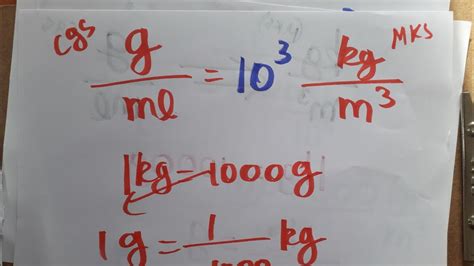 cgs g/ml = 10³ kg/m³ MKS
1kg = 1000g
1g = 1/1000 kg